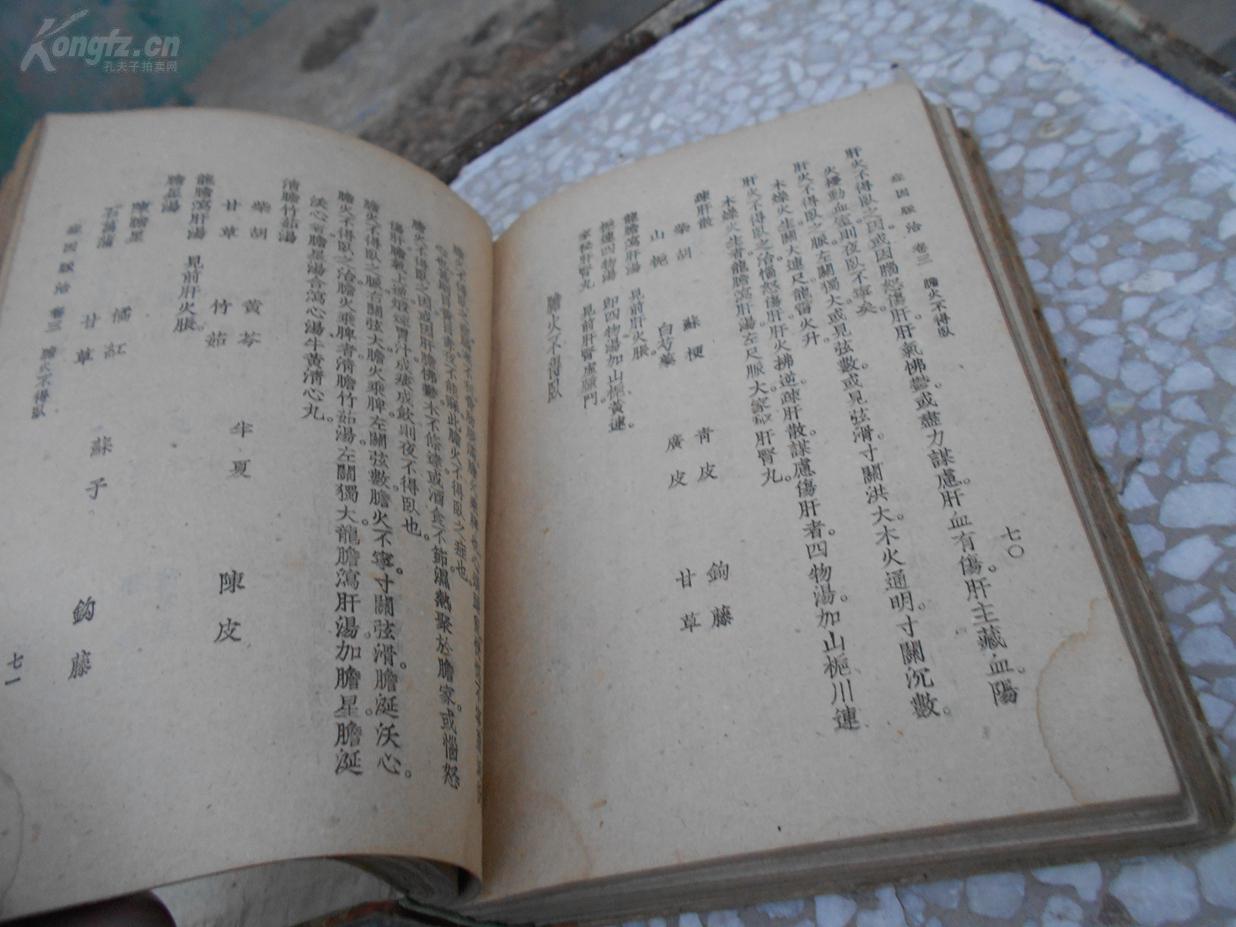 Kongfz.cn
孔夫子拍卖网
症因脈治 卷三 膽火不得臥
七〇
肝火不得臥之因。或因惱怒傷肝。肝氣怫鬱。或盡力謀慮。肝血有傷。肝主藏血。陽
火擾動血室。則夜臥不寧矣。
肝火不得臥之脈。左關獨大。或見弦數。或見弦滑。寸關洪大。木火通明。寸關沉數。
木燥火生。關大連尺。龍雷火升。
肝火不得臥之治。惱怒傷肝。肝火拂逆。疎肝散。謀慮傷肝者。四物湯。加山梔川連。
木燥火生者。龍膽瀉肝湯。左尺脈大。家祕肝腎丸。
疎肝散
柴胡 蘇梗 青皮 鈎藤
山梔 白芍藥 廣皮 甘草
龍膽瀉肝湯 見前肝火脹。
梔連四物湯 即四物湯加山梔黃連。
家秘肝腎丸 見前肝腎虛
膽火不得臥
此膽火不得臥之症也。
膽火不得臥之因。或因肝膽怫鬱。木不條達。或酒食不節。濕熱聚於膽家。或惱怒
傷肝。膽氣上逆。煅煉胃汁。成痰成飲。則夜不得臥也。
膽火不得臥之脈。右關弦大。膽火乘脾。左關弦數。膽火不寧。寸關弦滑。膽涎沃心。
膽火不得臥之治。膽火乘脾者。清膽竹茹湯。左關獨大。龍膽瀉肝湯加膽星。膽涎
沃心者。膽星湯合瀉心湯。牛黃清心丸。
清膽竹茹湯
柴胡 黃芩 半夏 陳皮
甘草 竹茹
龍膽瀉肝湯 見前肝火脹。
膽星湯
陳膽星 橘紅 蘇子 鈎藤
石菖蒲 甘草
症因脈治 卷三 膽火不得臥
七一